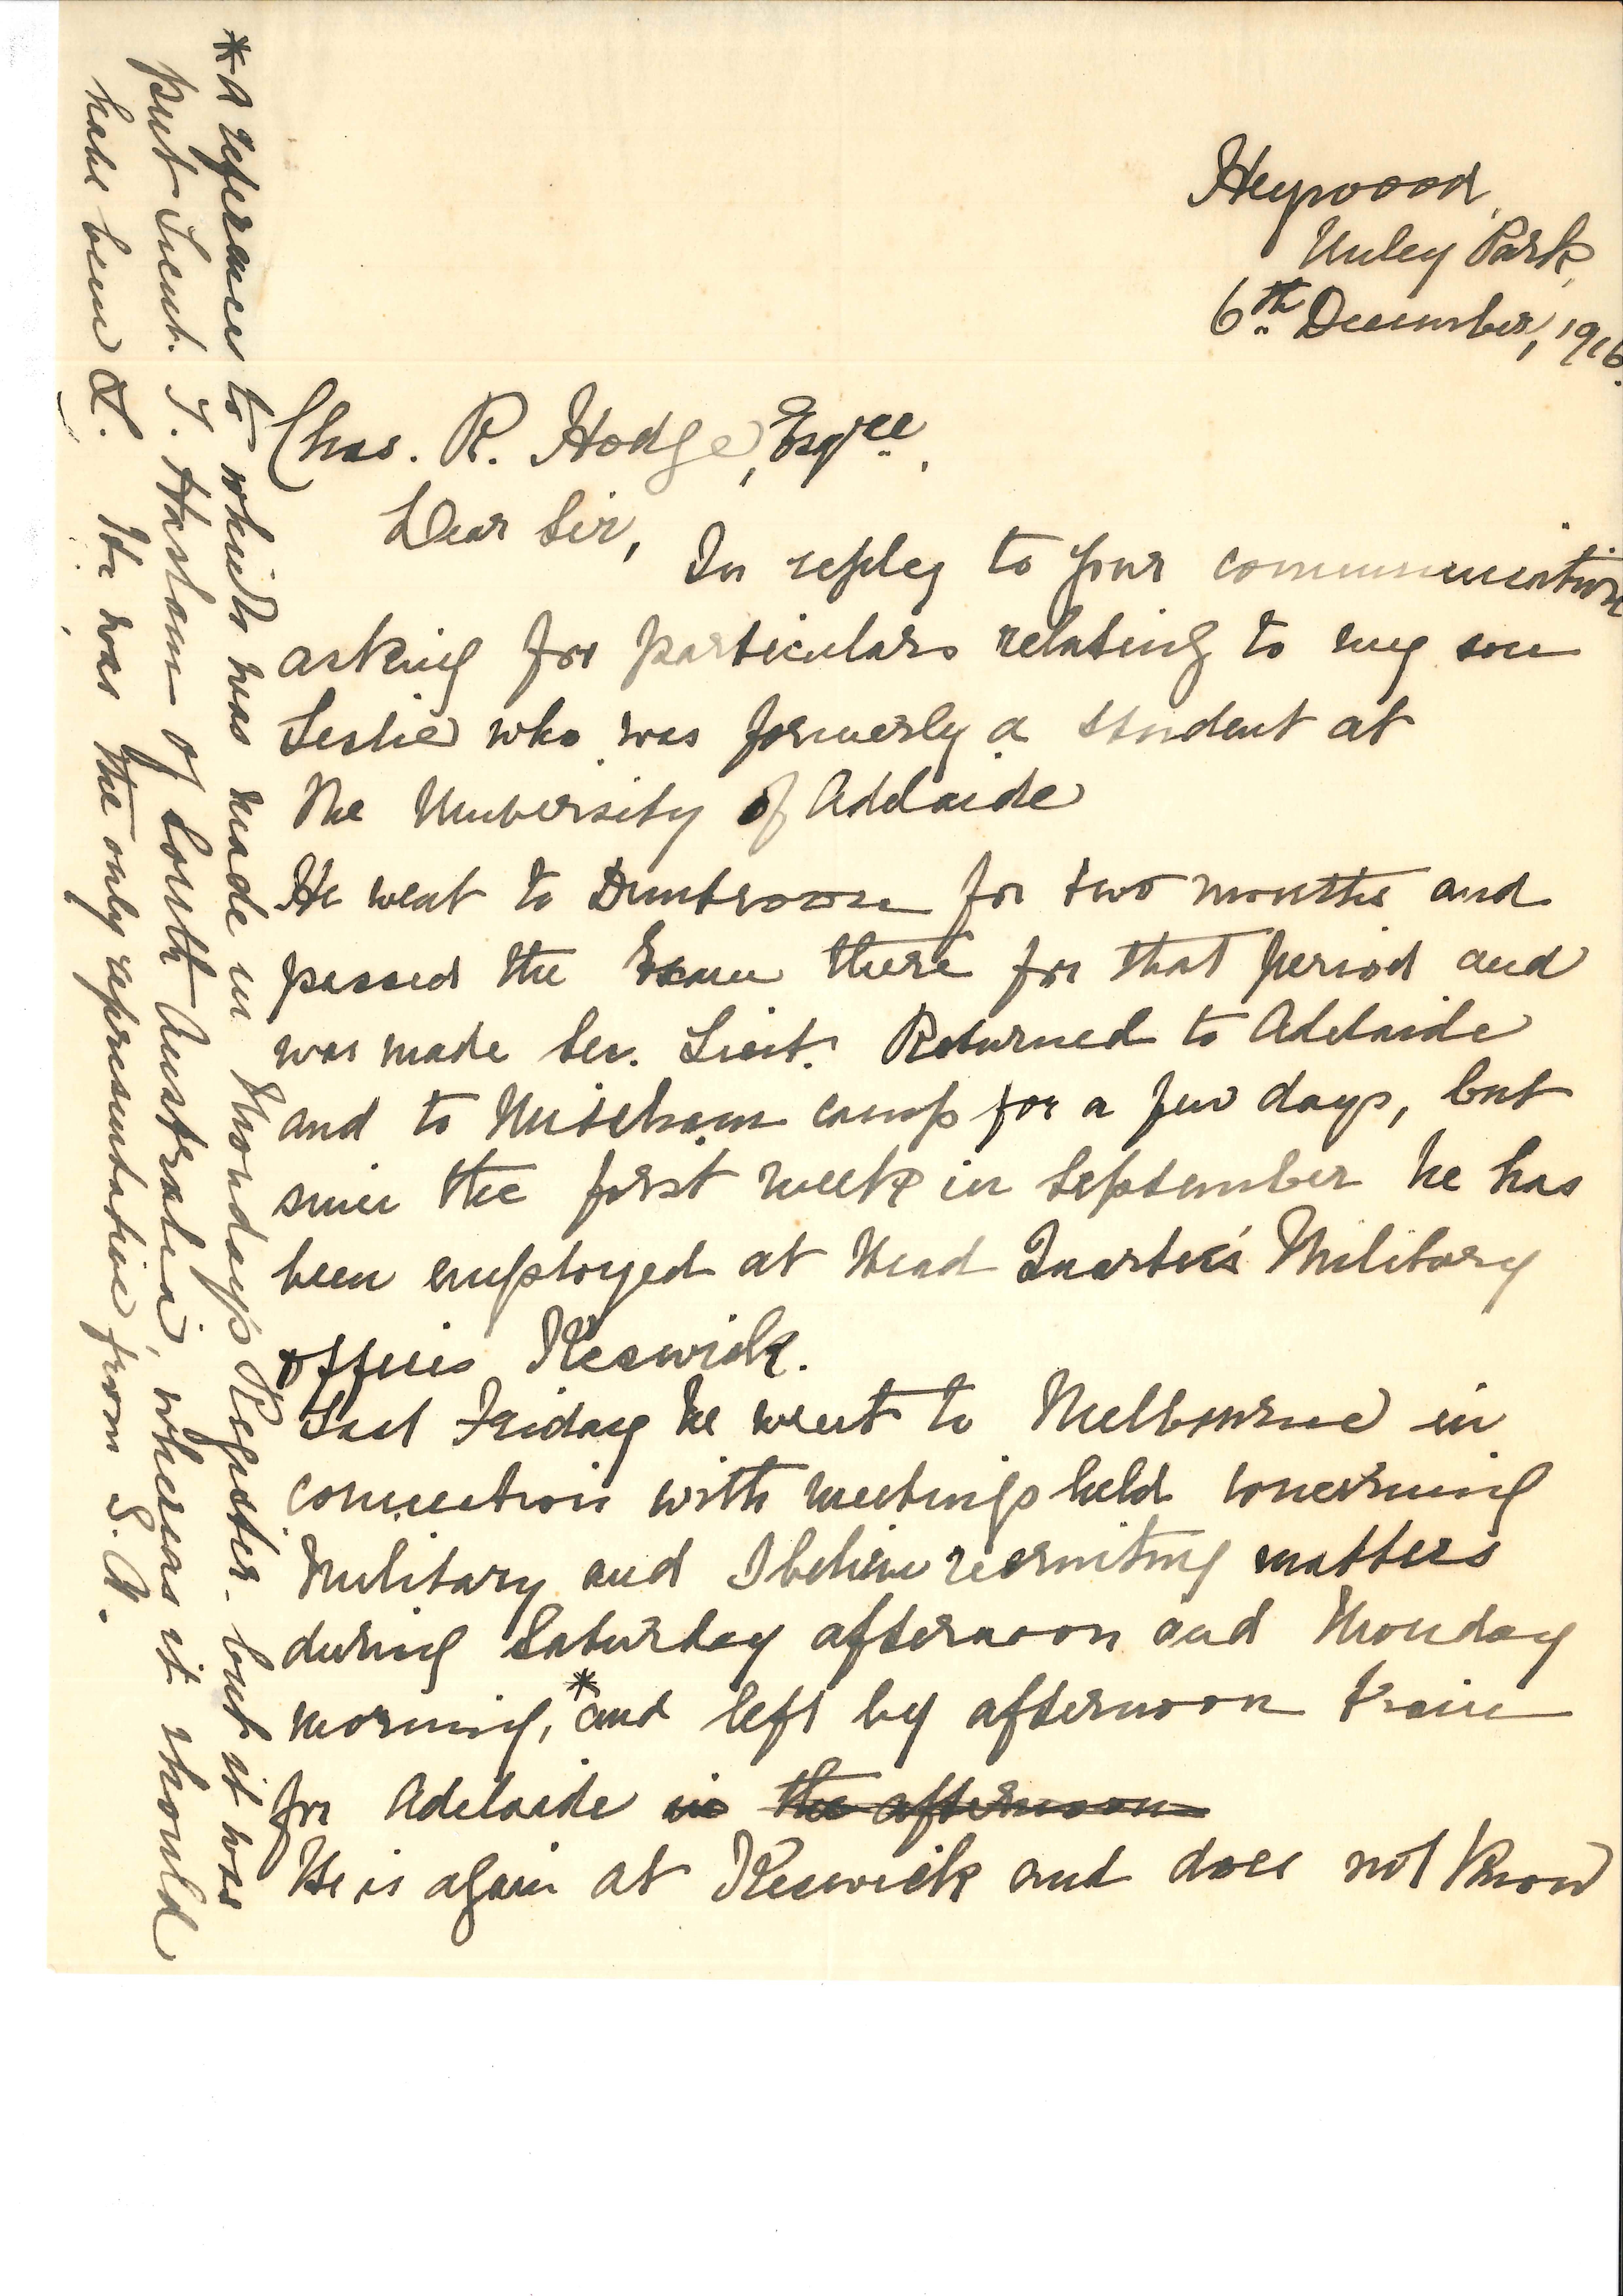 Heywood,
Unley Park,
6th December, 1916.
Chas. R. Hodge, Esqree.,
Dear Sir,
In reply to your communication
asking for particulars relating to my son
Leslie who was formerly a student at
The University of Adelaide
He went to Duntroon for two months and
passed the Exam there for that period and
was made Sec. Lieut. Returned to Adelaide
and to Mitcham camp for a few days, but
since the first week in September he has
been employed at Head Quarter's Military
offices Keswick.
Last Friday he went to Melbourne in
connection with meetings held concerning
Military and I believe recruiting matters
during Saturday afternoon and Monday
morning,* and left by afternoon train
for Adelaide in the afternoon
He is again at Keswick and does not know
*A reference to which was made in Monday's Register - but it was
put Lieut. T. Haslam of South Australia, whereas it should
have been L. He was the only representative from S.A.